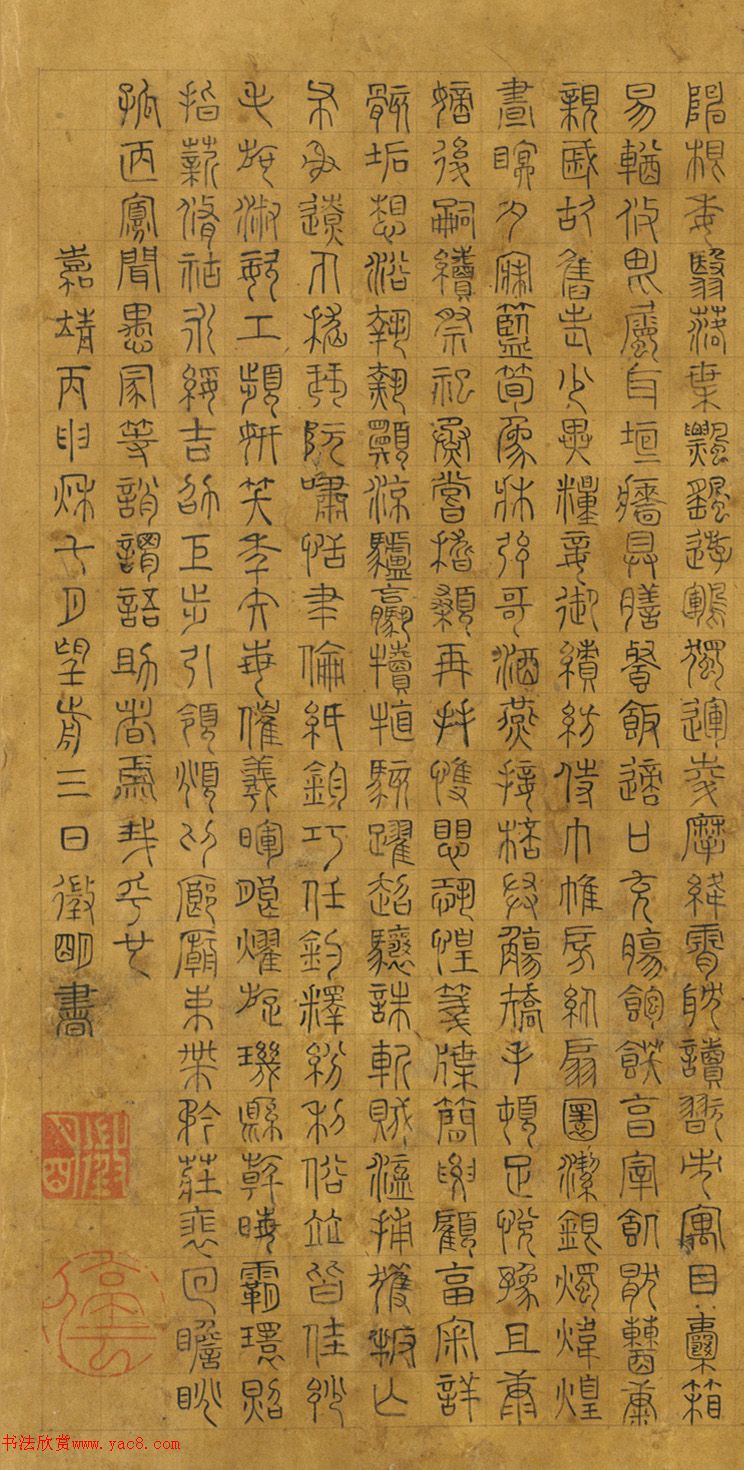 陳根委翳落葉飄颻遊鵾獨運凌摩絳霄耽讀翫市寓目囊箱
易輶攸畏屬耳垣牆具膳餐飯適口充腸飽飫烹宰飢厭糟糠
親戚故舊老少異糧妾御績紡侍巾帷房紈扇圓潔銀燭煒煌
晝眠夕寐籃筍象牀弦哥酒燕接桮舉觴矯手頓足悅豫且康
嫡後嗣續祭祀烝嘗稽顙再拜悚懼恐惶箋牒簡要顧答審詳
骸垢想浴執熱願涼驢騾犢特駭躍超驤誅斬賊盜捕獲叛亡
布射遼丸嵇琴阮嘯恬筆倫紙鈞巧任釣釋紛利俗並皆佳妙
毛施淑姿工顰妍笑年矢每催羲暉朗耀旋璣縣斡晦霸環照
指薪脩祜永綏吉劭矩步引領俯仰廊廟束帶矜莊裴回瞻眺
孤陋寡聞愚蒙等誚謂語助者焉哉乎也
嘉靖丙申秋七月望前三日徵明書
徵明
停雲
书法欣赏www.yac8.com